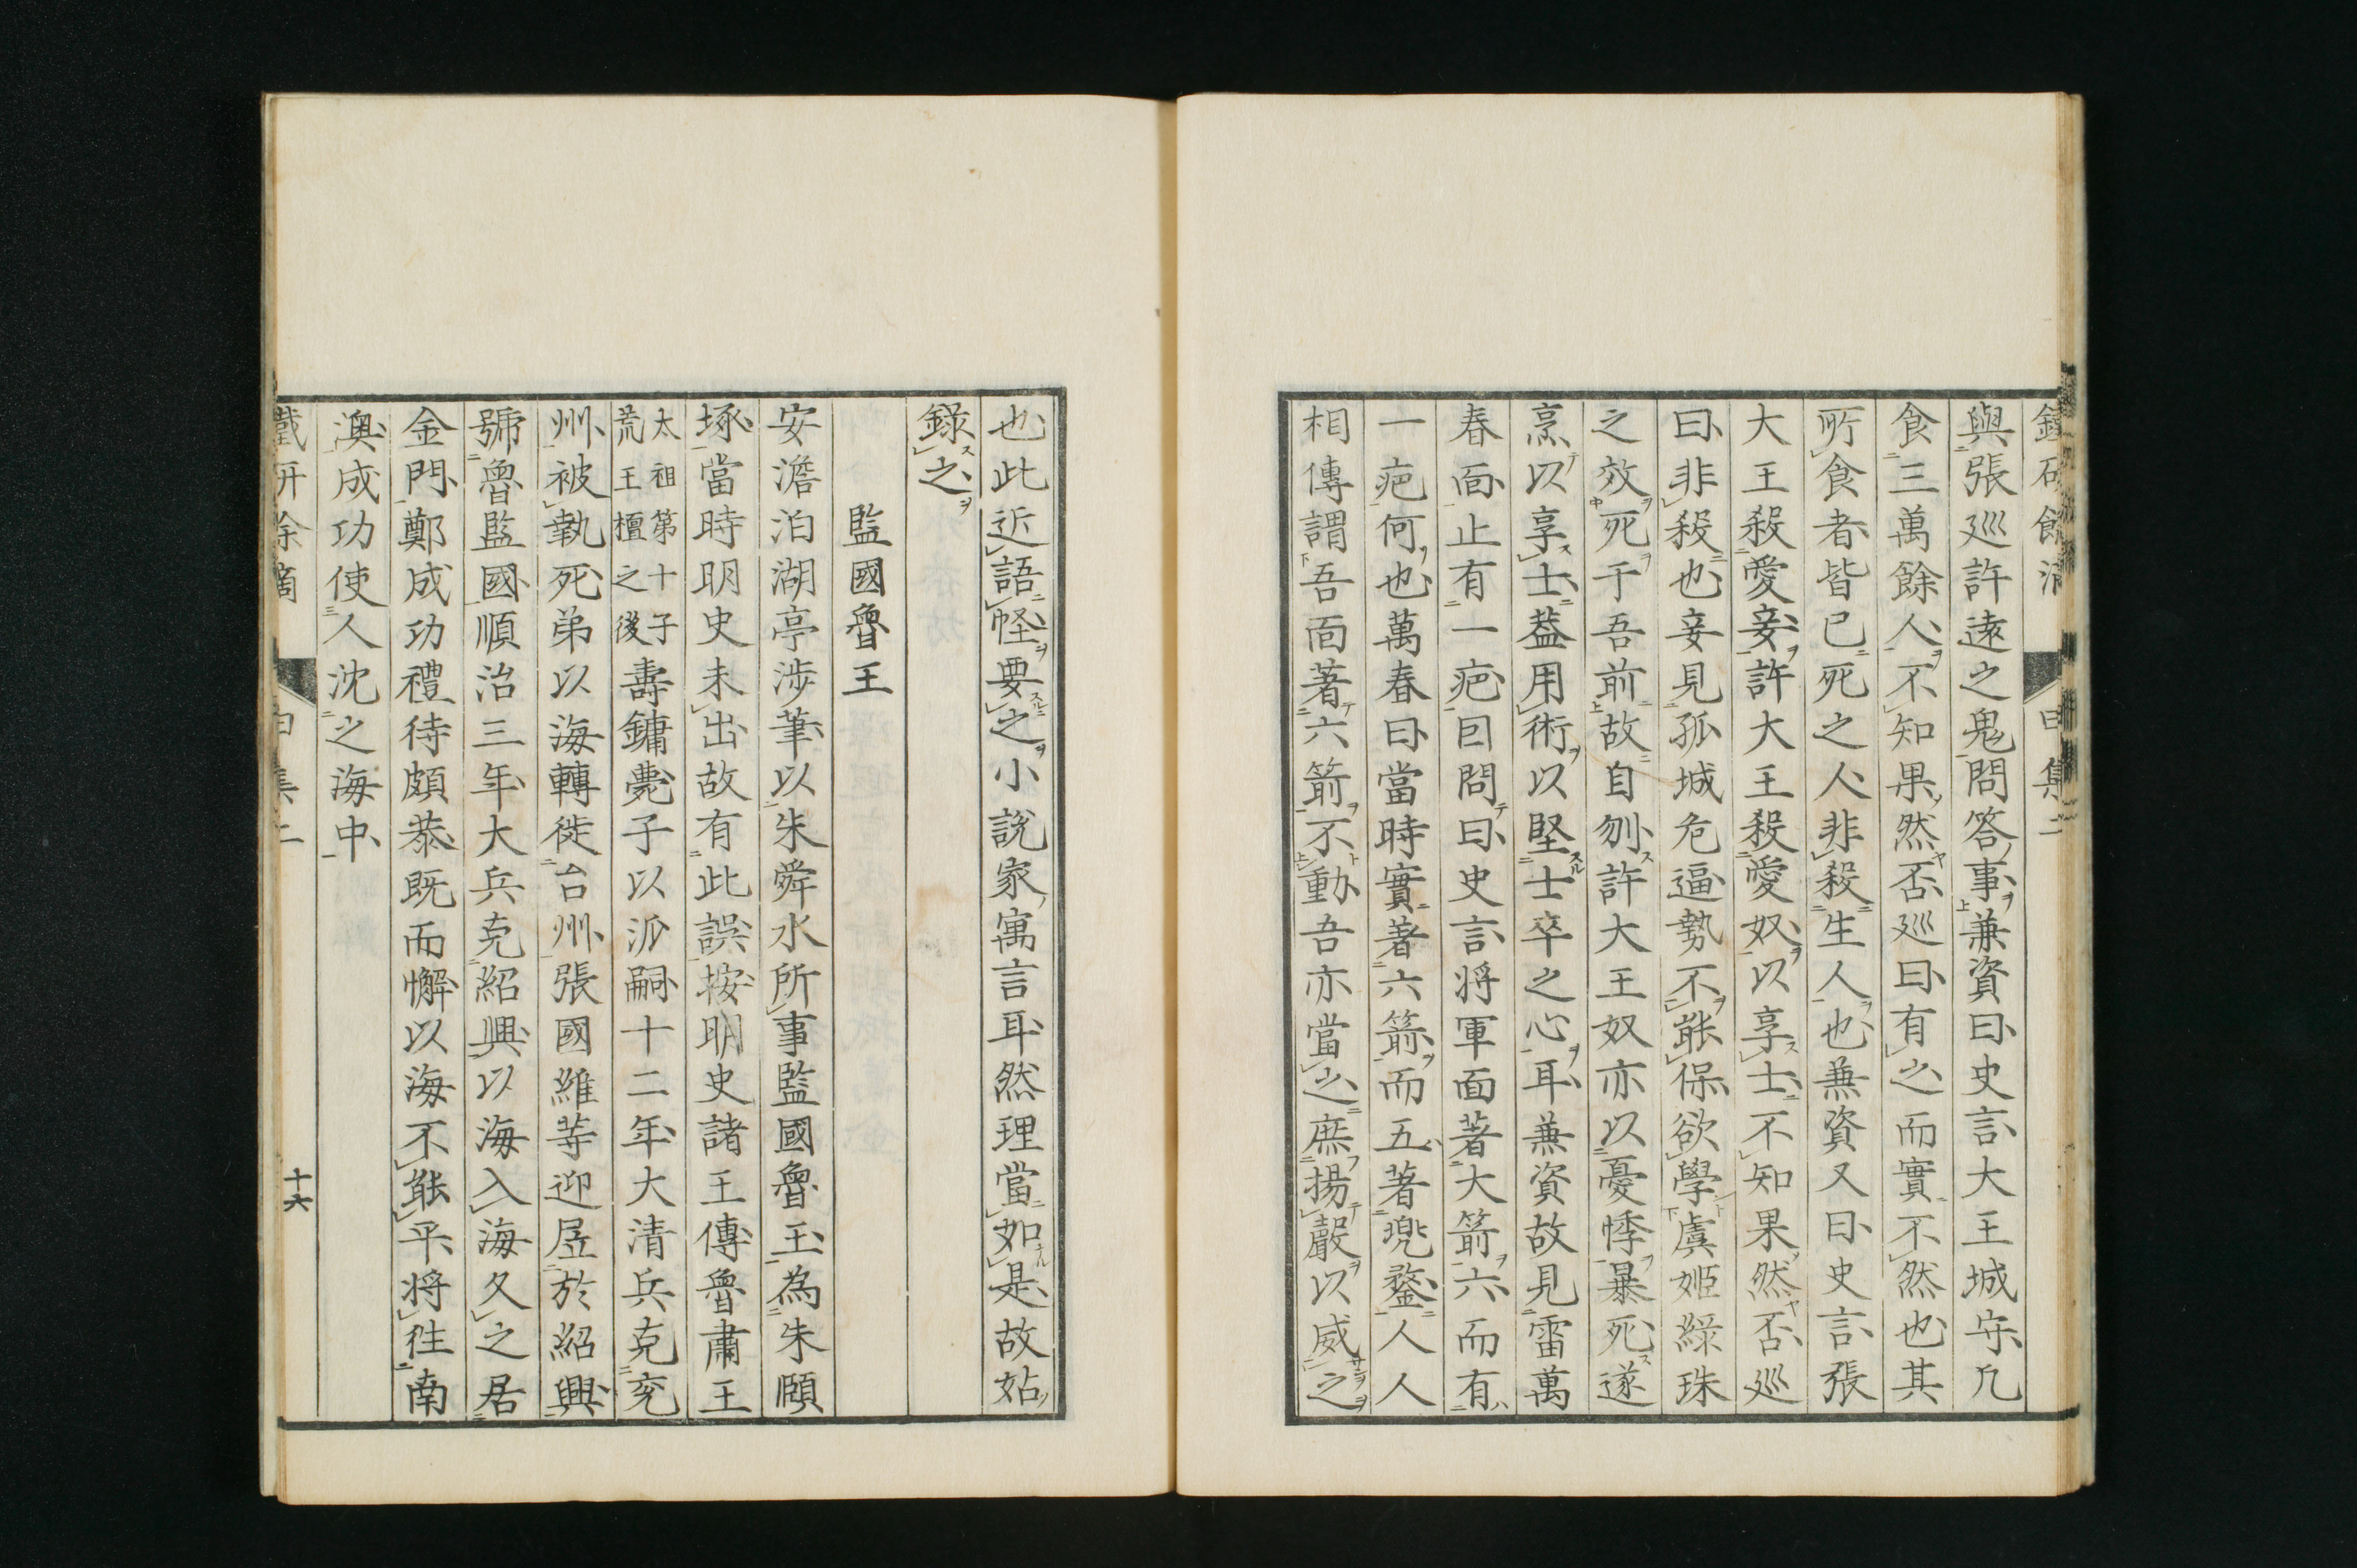 與張巡許遠之鬼問答事兼資曰史言大王城守凡
食三萬餘人不知果然否巡曰有之而實不然也其
所食者皆已死之人非殺生人也兼資又曰史言張
大王殺愛妾許大王殺愛奴以享士不知果然否巡
曰非殺也妾見孤城危逼勢不能保欲學虞姬綠珠
之效死于吾前故自刎許大王奴亦以憂悸暴死遂
烹以享士蓋用術以堅士卒之心耳兼資故見雷萬
春面止有一疤因問曰史言將軍面著大箭六而有
一疤何也萬春曰當時實著六箭而五著兜鍪人人
相傳謂吾面著六箭不動吾亦當之庶揚嚴以威之
也此近語怪要之小說家寓言耳然理當如是故姑
錄之
監國魯王
安澹泊湖亭涉筆以朱舜水所事監國魯王為朱頤
㙇當時明史未出故有此誤按明史諸王傳魯肅王
太祖第十子
荒王檀之後
壽鏞薨子以派嗣十二年大清兵克兗
州被執死弟以海轉徙台州張國維等迎居於紹興
號魯監國順治三年大兵克紹興以海入海久之居
金門鄭成功禮待頗恭既而懈以海不能平將往南
澳成功使人沈之海中
鐵研餘滴
甲集二
十六